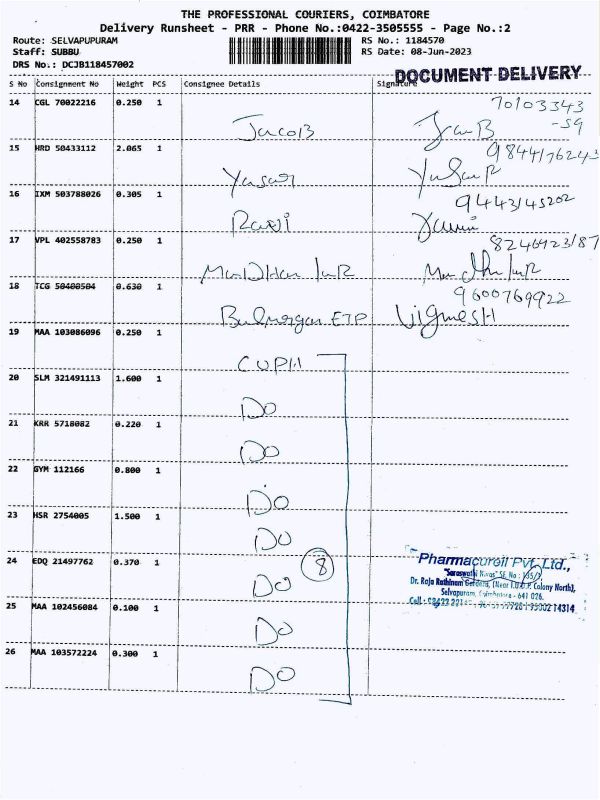 THE PROFESSIONAL COURIERS, COIMBATORE
Delivery Runsheet - PRR - Phone No.:0422-3505555 - Page No.:2
Route: SELVAPUPURAM RS No.: 1184570
Staff: SUBBU RS Date: 08-Jun-2023
DRS No.: DCJB118457002
DOCUMENT DELIVERY
S No Consignment No Weight PCS Consignee Details Signature
14 CGL 70022216 0.250 1
70103343
-59
JacoB
15 HRD 50433112 2.065 1
9844176243
Yasar
16 IXM 503788026 0.305 1
9443145202
Ravi
17 VPL 402558783 0.250 1
8246923187
18 TCG 50400504 0.630 1
9600769922
ETP Vigmesh
19 MAA 103086096 0.250 1
CUPH
20 SLM 321491113 1.600 1
DO
21 KRR 5718082 0.220 1
DO
22 GYM 112166 0.800 1
DO
23 HSR 2754005 1.500 1
DO
24 EDQ 21497762 0.370 1
8
DO
25 MAA 102456084 0.100 1
DO
26 MAA 103572224 0.300 1
DO
Pharmacureil Pvt. Ltd.,
"Saraswathi Nivas" SF. No : 535/
Dr. Raja Rathinam Gardens, (Near I.U.D.P. Colony North),
Selvapuram, Coimbatore - 641 026.
Cell :